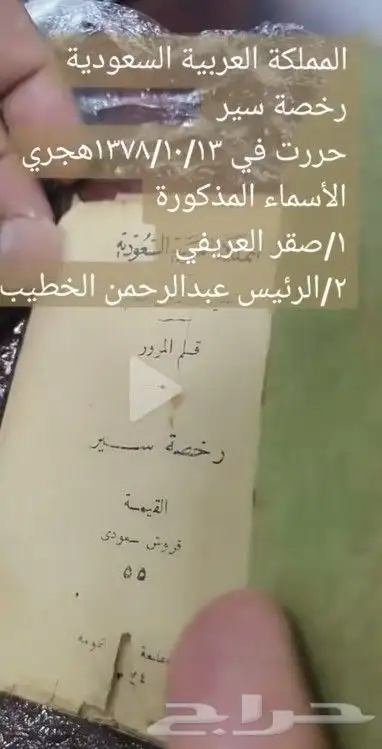 المملكة العربية السعودية
رخصة سير
حررت في ١٣٧٨/١٠/١٣هجري
الأسماء المذكورة
١/صقر العريفي
السعودية
٢/الرئيس عبدالرحمن الخطيب
قلم المرور
رخصة سير
القيمة
قروش سعودى
٥٥
حراج